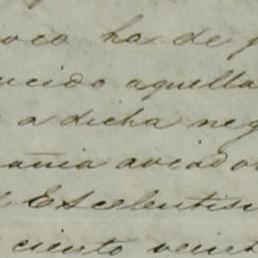 oco ha de p
ucido aquella
a dicha neg
añia aviador
l Escelentisi
ciento veinte